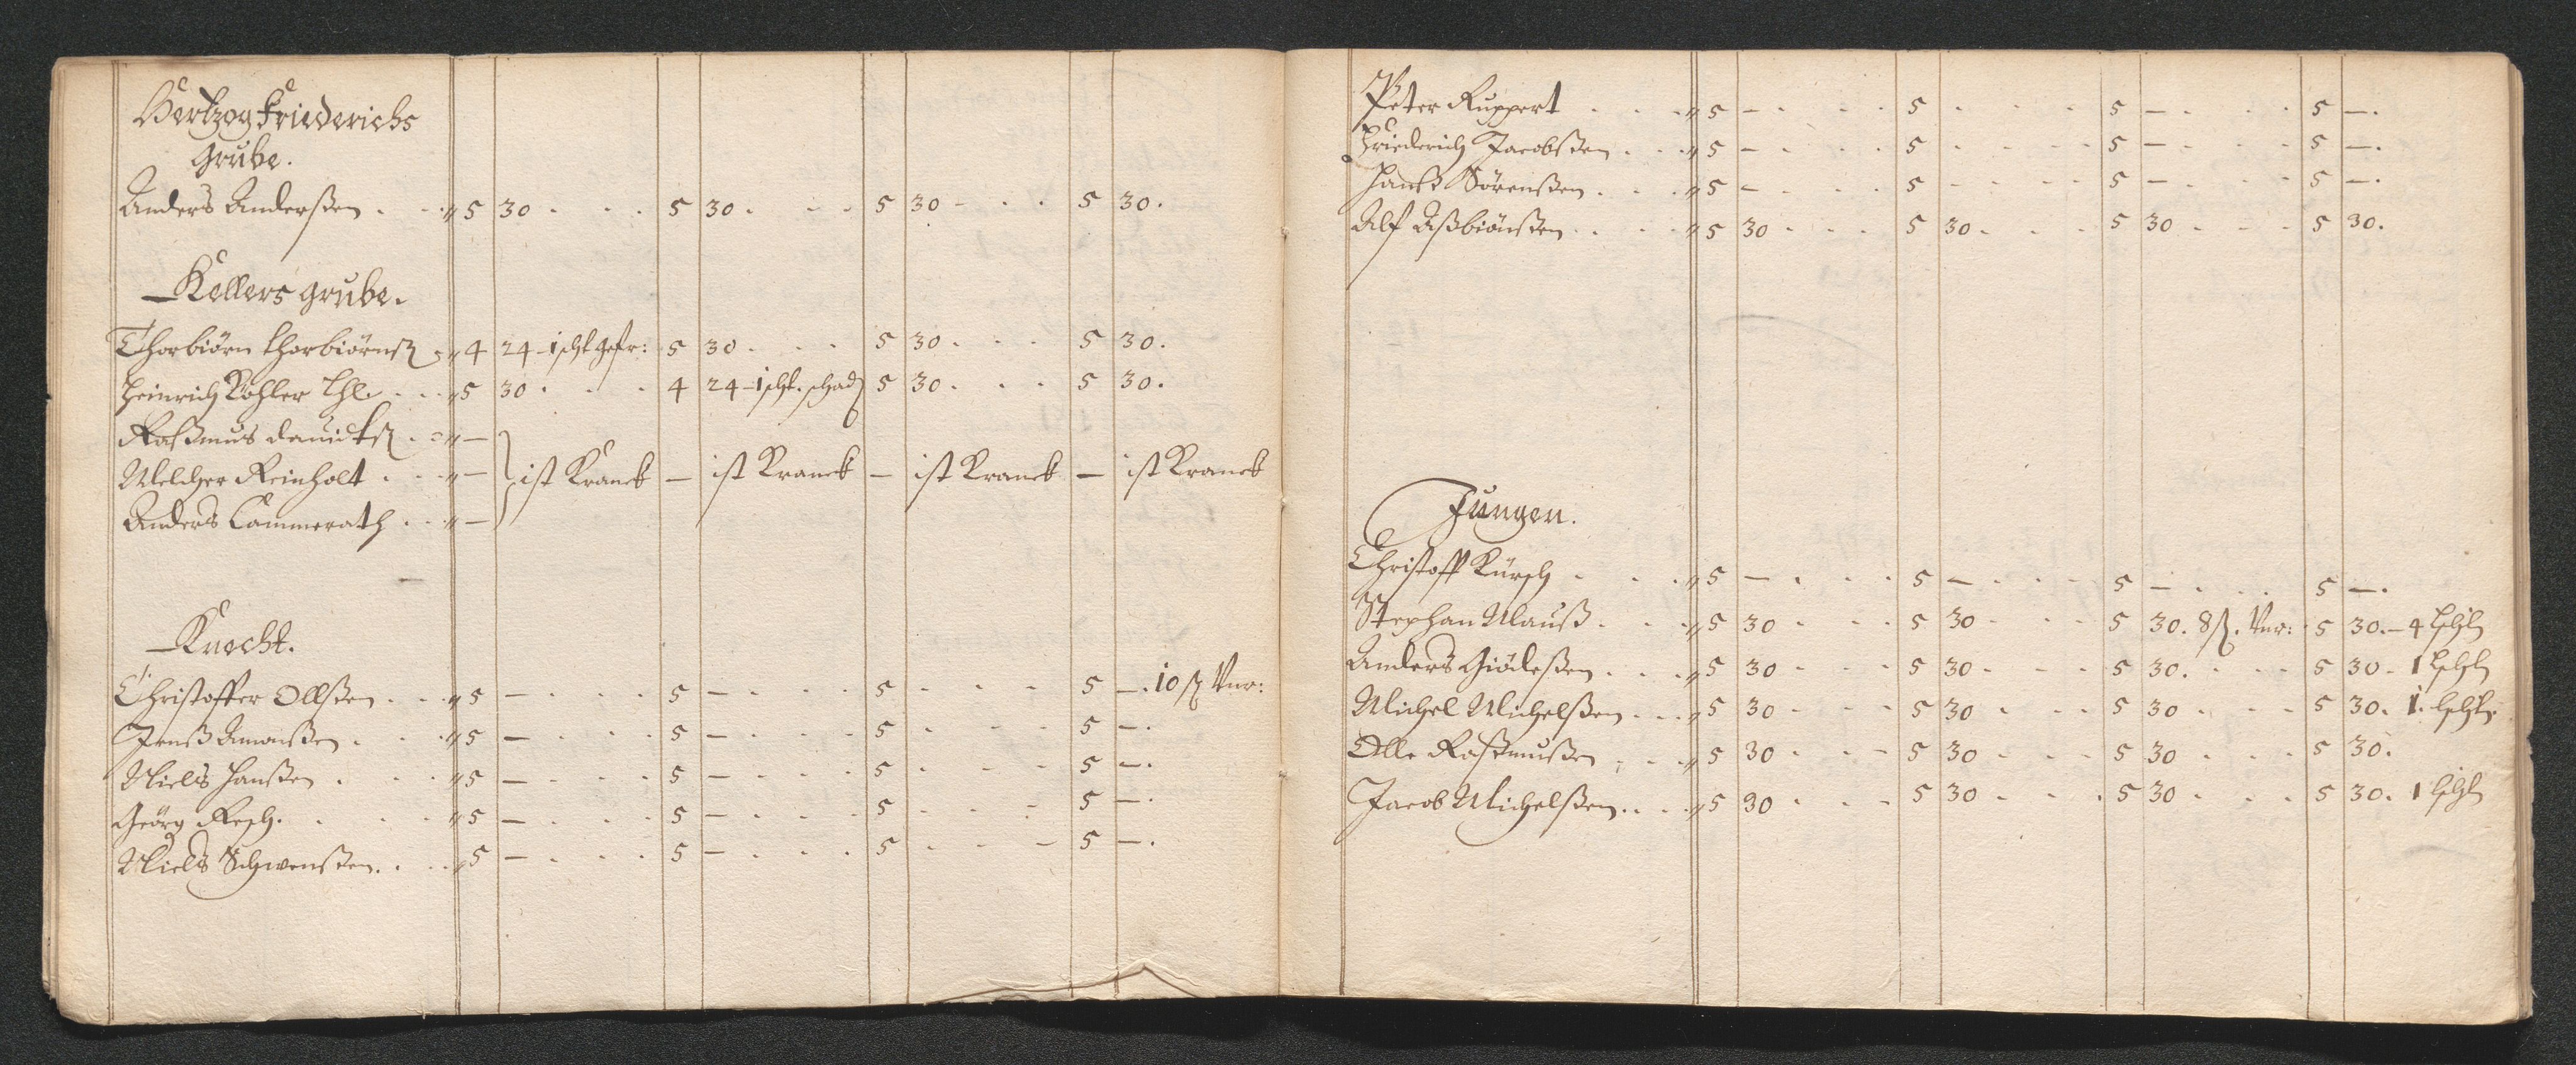 Hertzog Friederichs
Grube.
Anders Anderßen . . „ 5 30 . . . 5 30 . . . 5 30 - . . 5 30.
Kellers grube.
Thorbiörn thorbiörnß „ 4 24 - 1 scht gefr: 5 30 . . . 5 30 . . . 5 30.
Heinrich Köhler Thl. . . „ 5 30 . . . 4 24 - 1 scht. schad 5 30 . . . 5 30.
Raßmus dauidtß . „ —
Melcher Reinholt . . „ — ist Kranck — ist Kranck — ist Kranck — ist Kranck
Anders Cammerath . . „ —
Knecht.
Christoffer Ollßen . . „ 5 — . . . 5 — . . . 5 . . . 5 —. 10 ß Vnr:
Jenß Amonßen . . . „ 5 — . . . 5 — . . . 5 . . . 5 —.
Niels Hanßen . . . „ 5 — . . . 5 — . . . 5 . . . 5 —.
Geörg Resch . . . „ 5 — . . . 5 — . . . 5 . . . 5 —.
Niels Schwenßen . . . „ 5 — . . . 5 — . . . 5 . . . 5 —.
Peter Ruppert . . . „ 5 — . . . 5 . . . 5 — . . . 5 —.
Friederich Jacobßen . . . „ 5 — . . . 5 . . . 5 — . . . 5 —.
Hanß Sörenßen . . . „ 5 — . . . 5 . . . 5 — . . . 5 —.
Alf Aßbiönßen . . . „ 5 30 . . . 5 30 . . . 5 30 . . . 5 30.
Jungen.
Christoff Kürsch . . . „ 5 — . . . 5 — . . . 5 — . . . 5 —.
Stephan Mauß . . . „ 5 30 . . . 5 30 . . . 5 30. 8 ß. Vnr: 5 30. — 4
Anders Giödeßen . . . „ 5 30 . . . 5 30 . . . 5 30. . . 5 30 - 1
Michel Michelßen . . . „ 5 30 . . . 5 30 . . . 5 30 . . . 5 30. 1.
Olle Raßmußen . . . „ 5 30 . . . 5 30 . . . 5 30 . . . 5 30.
Jacob Michelßen . . . „ 5 30 . . . 5 30 . . . 5 30 . . . 5 30. 1